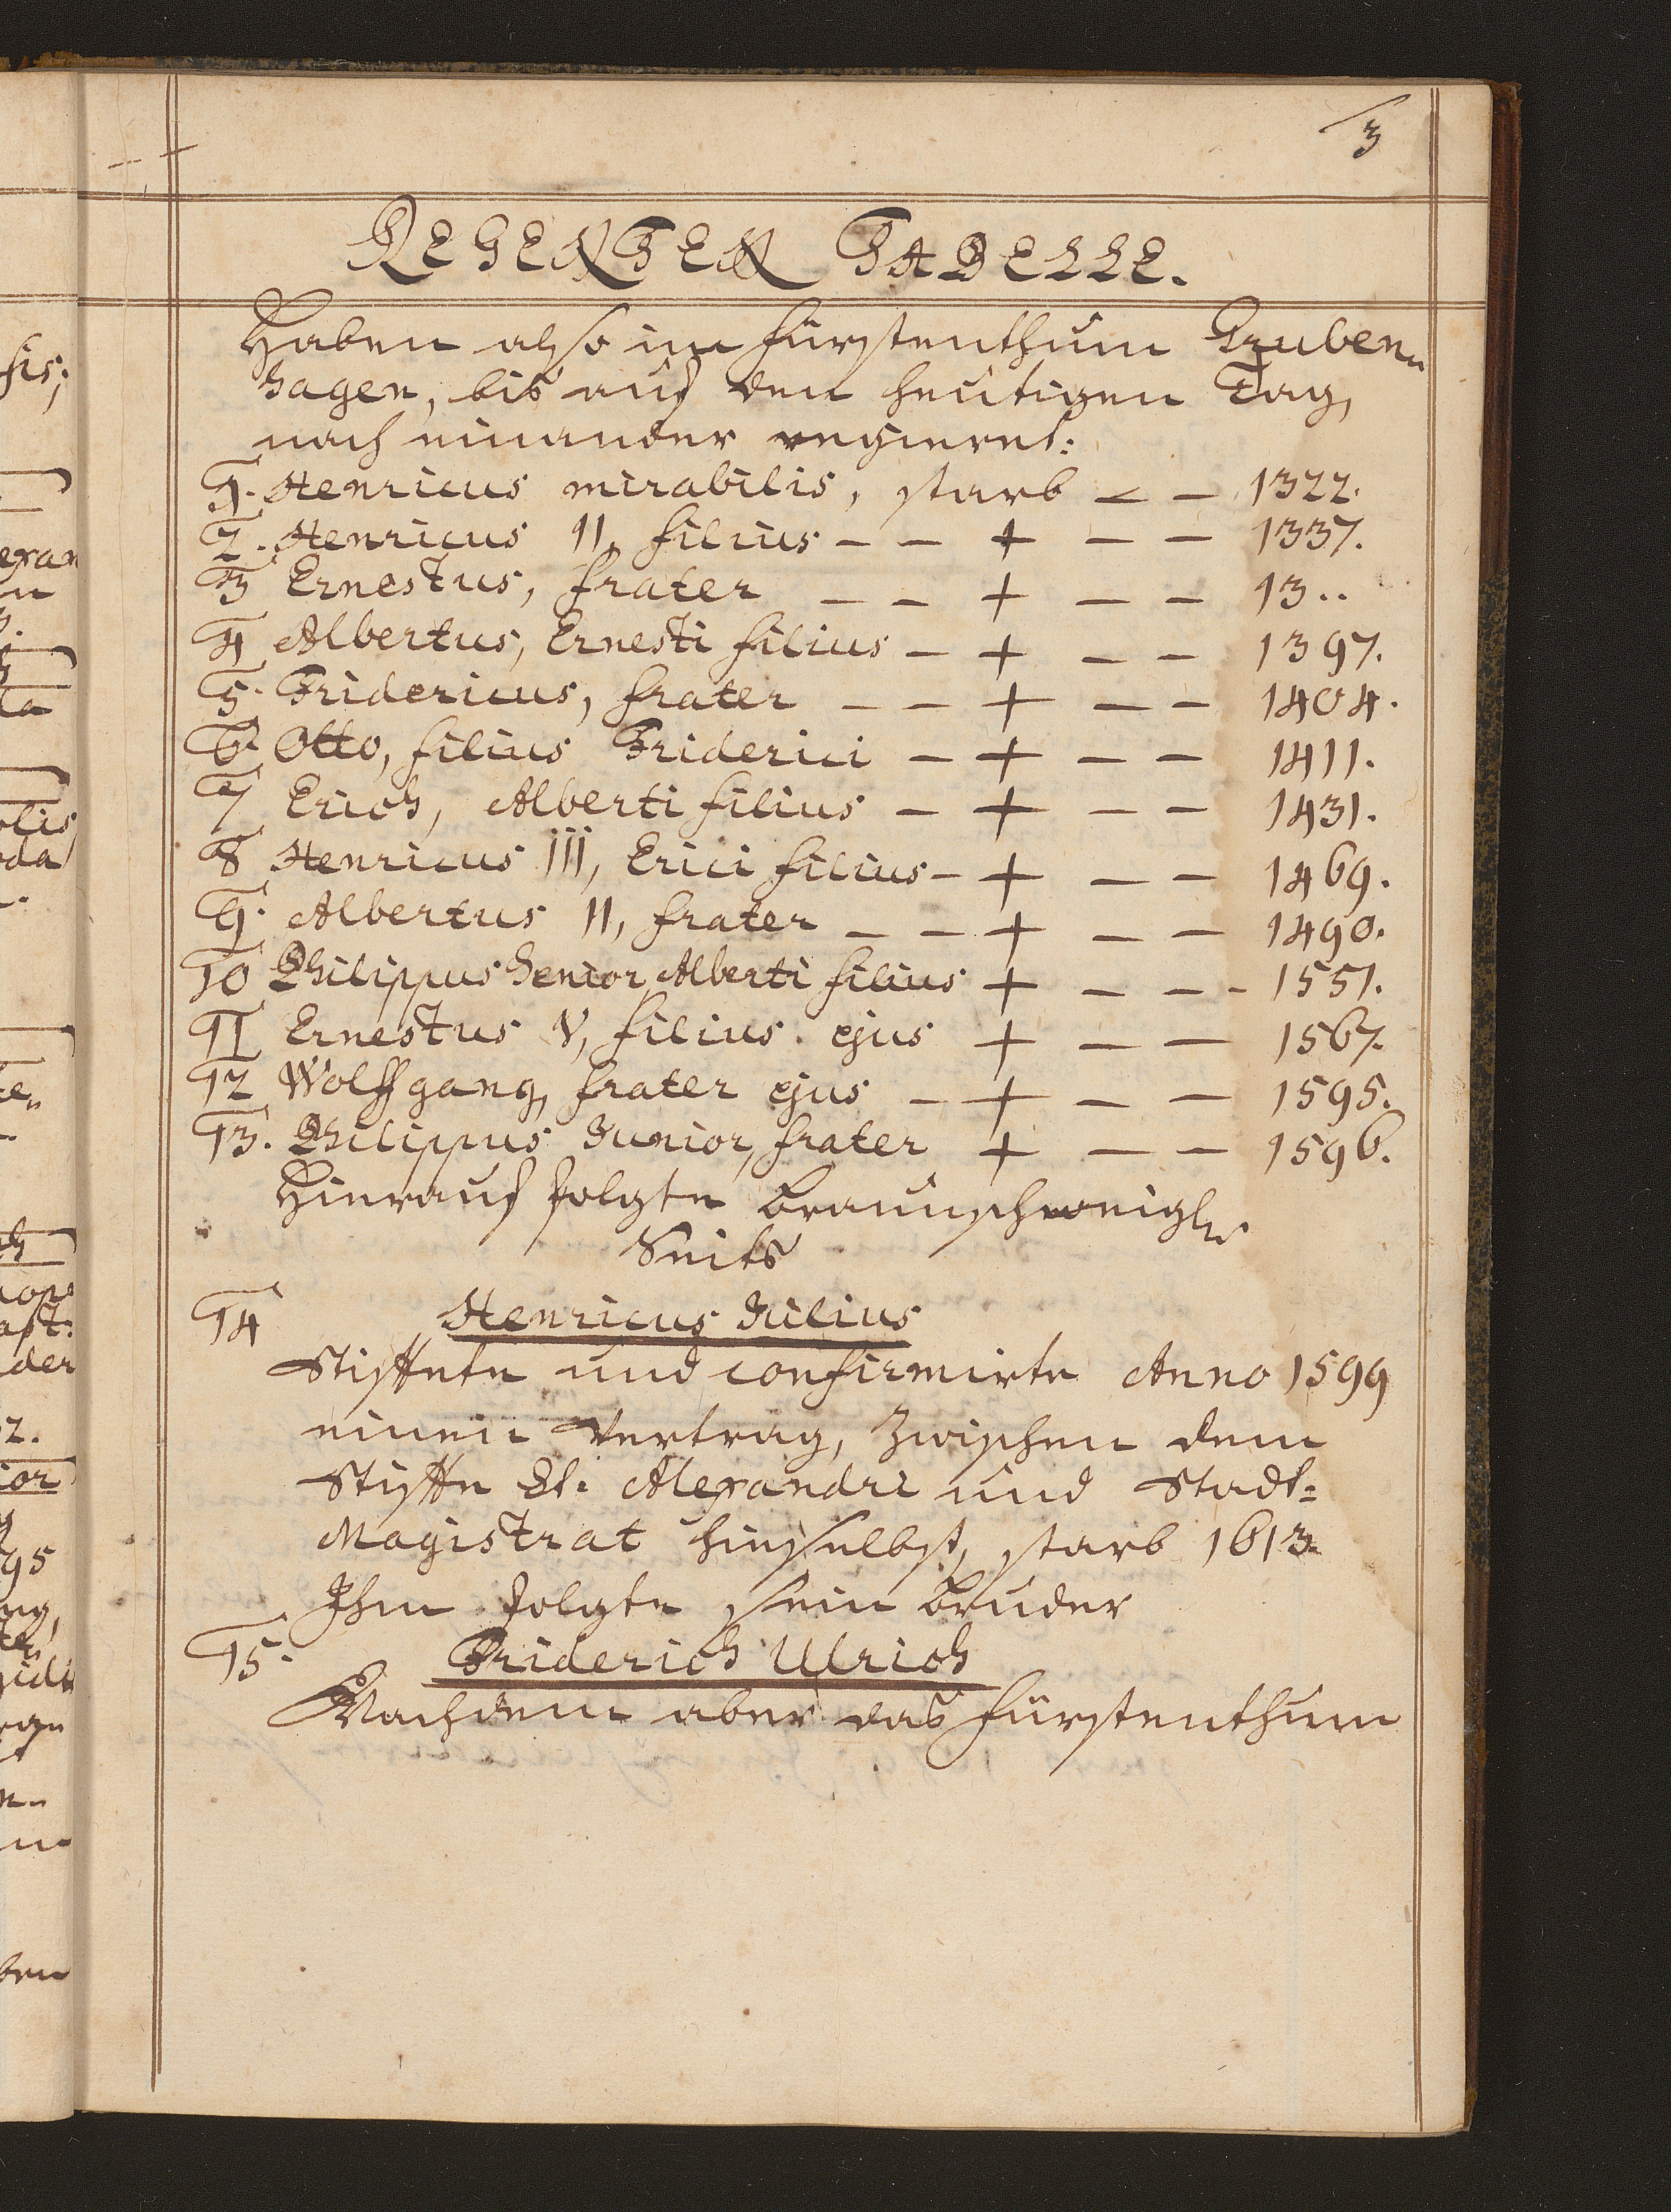 3
REGENTEN TABELLE.
Haben also im Fürstenthum Gruben„
hagen, bis auf den heutigen Tag,
nach einander regieret:
1. Henricus mirabilis, starb – – 1322.
2. Henricus II, filius – – + – – 1337.
3 Ernestus, frater – – + – – 13..
4 Albertus, Ernesti filius – + – – 1397.
5. Fridericus, frater – – + – – 1404.
6. Otto, filius Friderici – + – – 1411.
7 Erich, Alberti filius – + – – 1431.
8 Henricus III, Erici filius – + – – 1469.
9. Albertus II, frater – – + – – 1490.
10 Philippus Senior Alberti filius + – – - 1551.
11 Ernestus V, filius ejus + – – 1567.
12 Wolffgang, frater ejus – + – – 1595.
13. Philippus Junior, frater + – – 1596.
Hierauf folgte Braunschweigl.
Seits
14 Henricus Julius
Stifftete und confirmirte Anno 1599
einen Vertrag, zwischen dem
Stiffte St. Alexandri und Stadt=
Magistrat hieselbst, starb 1613.
Ihm folgte sein Bruder
15. Friderich Ulrich
Nachdem aber das Fürstenthum